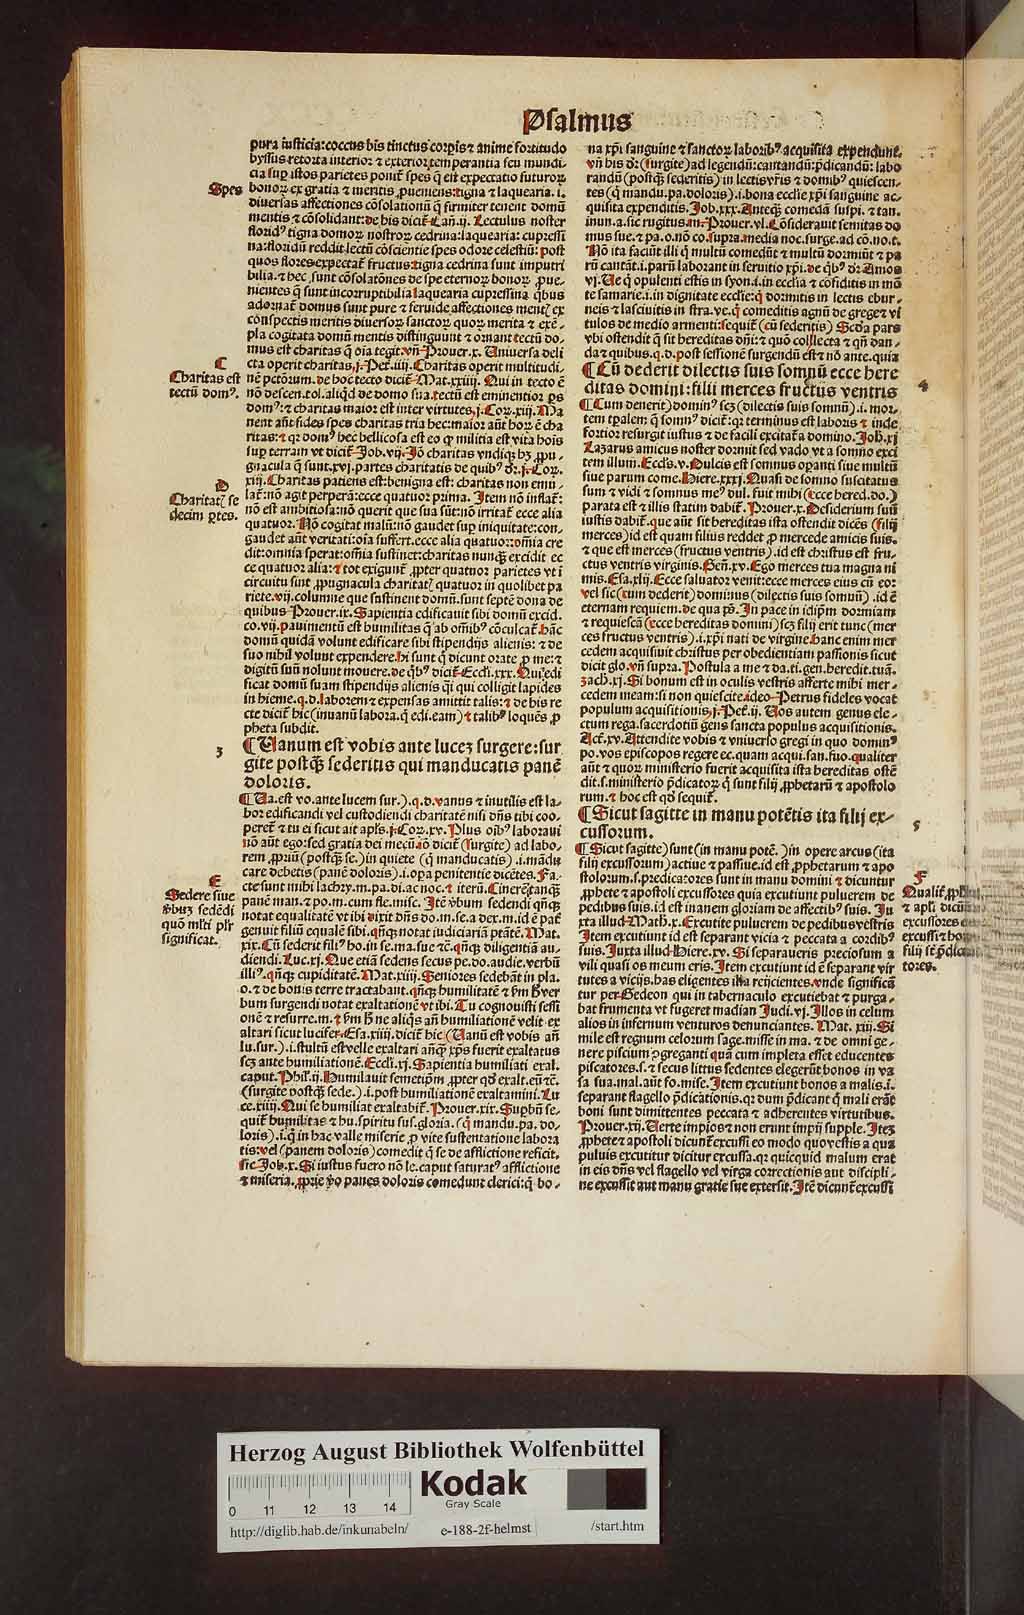 Psalmus
pura iusticia: coccus bis tinctus corpīs ⁊ anime fortitudo
byssus retorta interior ⁊ exterior, temperantia seu mundi
cia sup̱ istos parietes ponit̄ spes q̄ est expectatio futuroꝝ
Spes
bonoꝝ ex gratia ⁊ meritis ꝓueniens: tigna ⁊ laquearia .i.
diuersas affectiones cōsolationū q̄ firmiter tenent domū
mentis ⁊ cōsolidant: de his dicit̄ Lan .ij. Lectulus noster
floridꝰ tigna domoꝝ nostroꝝ cedrina: laquearia: cupressi
na: floridū reddit lectū cōscientie spes odore celestiū: post
quos flores expectat̄ fructus: tigna cedrina sunt imputri
bilia. ⁊ hec sunt cōsolatōnes de spe eternoꝝ bonoꝝ ꝓue-
nientes q̄ sunt incorruptibilia laquearia cupressina q̄bus
adornat̄ domus sunt pure ⁊ feruide affectiones mentꝭ ex
cōspectis meritis diuersoꝝ sanctoꝝ quoꝝ merita ⁊ exē-
pla cogitata domū mentis distinguunt ⁊ ornant tectū do-
mus est charitas q̄ oīa tegit. vn̄ Prouer .x. Uniuersa deli
C
Charitas est
tectū domꝰ.
cta operit charitas, j. Pet̄. iiij. Charitas operit multitudi-
nē pctōrum. de hoc tecto dicit̄ Mat. xxiiij. Qui in tecto ē
nō descen. tol. aliqd de domo sua. tectū est eminentior ꝑs
domꝰ: ⁊ charitas maior est inter virtutes, j. Coꝝ. xiij. Ma
nent aūt fides spes charitas tria hec: maior aūt hoꝝ ē cha
ritas: ⁊ qꝛ domꝰ hec bellicosa est eo ꝙ militia est vita hoīs
sup̱ terram vt dicit̄ Job. vij. Iō charitas vndiqꝫ hꝫ ꝓpu-
gnacula q̄ sunt .xvj. partes charitatis de quibꝰ dr̄. j. Coꝝ.
D
Charitatꝭ se
decim ꝑtes.
xiij. Charitas patiens est: benigna est: charitas non emu-
lat̄: nō agit perperā: ecce quatuor prima. Item nō inflat̄:
nō est ambitiosa: nō querit que sua sūt: nō irritat̄ ecce alia
quatuor. Nō cogitat malū: nō gaudet sup̱ iniquitate: con-
gaudet aūt veritati: oīa suffert. ecce alia quatuor: omīa cre
dit: omnia sperat: omīa sustinet: charitas nunqꝫ excidit ec
ce quatuor alia: ⁊ tot exigunt̄ ꝓpter quatuor parietes vt ī
circuitu sint ꝓpugnacula charitatꝭ quatuor in quolibet pa
riete. vij. columne que sustinent domū. sunt septē dona de
quibus Prouer. ix. Sapientia edificauit sibi domū excid.
co. vij. pauimentū est humilitas q̄ ab omībꝰ cōculcat̄ hāc
domū quidā volunt edificare sibi stipendijs alienis: ⁊ de
suo nihil volunt expendere. hi sunt q̄ dicunt orate ꝓ me: ⁊
digitū suū nolunt mouere. de q̄bꝰ dicit̄ Eccli. xxx. Qui edi
ficat domū suam stipendijs alienis q̄si qui colligit lapides
in hieme. q. d. laborem ⁊ expensas amittit talis: ⁊ de his re
cte dicit̄ hic (inuanū labora. q̄ edi. eam) ⁊ talibꝰ loquēs ꝓ
pheta subdit.
3
¶ Uanum est vobis ante lucez surgere: sur
gite postqꝫ sederitis qui manducatis panē
doloris.
¶ Ua. est vo. ante lucem sur.) .q. d. vanus ⁊ inutilis est la-
bor edificandi vel custodiendi charitatē nisi dn̄s tibi coo-
peret̄ ⁊ tu ei sicut ait apl̄s. j. Coꝝ. xv. Plus oībꝰ laboraui
nō aūt ego: sed gratia dei mecū. iō dicit̄ (surgite) ad labo-
rem ꝓpriū (postqꝫ se.) in quiete (q̄ manducatis) .i. mādu
care debetis (panē doloris) .i. opa penitentie dicētes. Fa-
E
Sedere siue
v̄buꝫ sedēdi
quō mlti plr̄
significat.
cte sunt mihi lachry. m. pa. di. ac noc. ⁊ iterū. Cinerē tanqꝫ
panē man. ⁊ po. m. cum fle. misc. Itē v̄bum sedendi qn̄qꝫ
notat equalitatē vt ibi dixit dn̄s do. m. se. a dex. m. id ē pat̄
genuit filiū equalē sibi. qn̄qꝫ notat iudiciariā ptātē. Mat.
xix. Cū sederit filiꝰ ho. in se. ma. sue ⁊c. qn̄qꝫ diligentiā au-
diendi. Luc. xj. Que etiā sedens secus pe. do. audie. verbū
illiꝰ. qn̄qꝫ cupiditatē. Mat. xiiij. Seniores sedebāt in pla.
o. ⁊ de bonis terre tractabant. qn̄qꝫ humilitatē ⁊ ꝑm hꝫ ver
bum surgendi notat exaltationē vt ibi. Tu cognouisti sessi
onē ⁊ resurre. m. ⁊ ꝑm hꝫ ne aliq̄s an̄ humiliationē velit ex
altari sicut lucifer. Esa. xiiij. dicit̄ hic (Uanū est vobis an̄
lu. sur.) .i. stultū est velle exaltari anq̄ꝫ xp̄s fuerit exaltatus
scꝫ ante humiliationē. Eccli. xj. Sapientia humiliati exal.
caput. Phil. ij. Humilauit semetip̄m ꝓpter qd̄ exalt. eū ⁊c.
(surgite postqꝫ sede.) .i. post humiliationē exaltamini. Lu
ce. xiiij. Qui se humiliat exaltabit̄. Prouer. xix. Suꝑbū se-
quit̄ humilitas ⁊ hu. spiritu sus. gloria. (q̄ mandu. pa. do-
loris) .i. q̄ in hac valle miserie ꝓ vite sustentatione labora
tis: vel (panem doloris) comedit q̄ se de afflictione reficit.
sic Job. x. Si iustus fuero nō le. caput saturatꝰ afflictione
⁊ miseria. ꝓprie v̄o panes doloris comedunt clerici: q̄ bo-
na xp̄i sanguine ⁊ sanctoꝝ laboribꝰ acquisita expendunt.
vn̄ his dr̄: (surgite) ad legendū: cantandū: p̄dicandū: labo
randū (postqꝫ sederitis) in lectis vr̄is ⁊ domibꝰ quiescen-
tes (q̄ mandu. pa. doloris) .i. bona ecclie xp̄i sanguine ac-
quisita expenditis. Job. xxx. Anteqꝫ comedā suspi. ⁊ tan.
inun. a. sic rugitus. an. Prouer. vl. Cōsiderauit semitas do
mus sue. ⁊ pa. o. nō co. supra. media noc. surge. ad cō. no. t.
Nō ita faciūt illi q̄ multū comedūt ⁊ multū dormiūt ⁊ pa
rū cantāt. i. parū laborant in seruitio xp̄i. de q̄bꝰ dr̄ Amos
vj. Ue q̄ opulenti estis in syon. i. in ecclīa ⁊ cōfiditis in mō
te samarie .i. in dignitate ecclie: q̄ dormitis in lectis ebur-
neis ⁊ lasciuitis in stra. ve. q̄ comeditis agnū de grege ⁊ vi
tulos de medio armenti: sequit̄ (cū sederitis) Scd̄a pars
vbi ostendit q̄ sit hereditas dn̄i: ⁊ quō collecta ⁊ qn̄ dan-
da ⁊ quibus. q. d. post sessionē surgendū est ⁊ nō ante. quia
4
¶ Cū dederit dilectis suis somnū ecce here
ditas domini: filii merces fructus ventris
¶ Cum dederit) dominꝰ scꝫ (dilectis suis somnū) .i. mor-
tem tp̄alem q̄ somnꝰ dicit̄: qꝛ terminus est laboris ⁊ inde
fortior resurgit iustus ⁊ de facili excitat̄ a domino. Joh. xj
Lazarus amicus noster dormit sed vado vt a somno exci
tem illum. Eccls. v. Dulcis est somnus oꝑanti siue multū
siue parum come. Hiere. xxxj. Quasi de somno suscitatus
sum ⁊ vidi ⁊ somnus meꝰ dul. fuit mihi (ecce hered. do.)
parata est ⁊ illis statim dabit̄. Prouer. x. Desiderium suū
iustis dabit̄. que aūt sit hereditas ista ostendit dicēs (filij
merces) id est quam filius reddet ꝓ mercede amicis suis.
⁊ que est merces (fructus ventris) .id est christus est fru-
ctus ventris virginis. Gen̄. xv. Ego merces tua magna ni
mis. Esa. xlij. Ecce saluator venit: ecce merces eius cū eo:
vel sic (cum dederit) dominus (dilectis suis somnū) .id ē
eternam requiem. de qua pṡ. In pace in idip̄m dormiam
⁊ requiescā (ecce hereditas domini) scꝫ filij erit tunc (mer
ces fructus ventris) .i. xp̄i nati de virgine hanc enim mer
cedem acquisiuit christus per obedientiam passionis sicut
dicit glo. vn̄ supra. Postula a me ⁊ da. ti. gen. heredit. tuā.
zach. xj. Si bonum est in oculis vestris afferte mihi mer-
cedem meam: si non quiescite. ideo Petrus fideles vocat
populum acquisitionis. j. Pet̄. ij. Uos autem genus ele-
ctum rega. sacerdotiū gens sancta populus acquisitionis.
Act̄. xv. Attendite vobis ⁊ vniuerso gregi in quo dominꝰ
po. vos episcopos regere ec. quam acqui. san. suo. qualiter
aūt ⁊ quoꝝ ministerio fuerit acquisita ista hereditas ostē
dit. s. ministerio p̄dicatoꝝ q̄ sunt filij ꝓphetarū ⁊ apostolo
rum. ⁊ hoc est qd̄ sequit̄.
5
¶ Sicut sagitte in manu potētis ita filij ex-
cussorum.
¶ Sicut sagitte) sunt (in manu potē.) in opere arcus (ita
filij excussorum) actiue ⁊ passiue. id est ꝓphetarum ⁊ apo
stolorum. s. predicatores sunt in manu domini ⁊ dicuntur
F
ꝓphete ⁊ apostoli excussores quia excutiunt puluerem de
pedibus suis. id est inanem gloriam de affectibꝰ suis. Iu
xta illud Math. x. Excutite puluerem de pedibus vestris
Item excutiunt id est separant vicia ⁊ peccata a cordibꝰ
suis. Iuxta illud Hiere. xv. Si separaueris preciosum a
vili quasi os meum eris. Item excutiunt id ē separant vir
tutes a vicijs. has eligentes illa reijcientes. vnde significā
tur per Gedeon qui in tabernaculo excutiebat ⁊ purga-
bat frumenta vt fugeret madian Judi. vj. Illos in celum
alios in infernum venturos denunciantes. Mat. xiij. Si
mile est regnum celorum sage. misse in ma. ⁊ de omni ge-
nere piscium ꝯgreganti quā cum impleta esset educentes
piscatores. s. ⁊ secus littus sedentes elegerūt bonos in va
sa sua. mal. aūt fo. mise. Item excutiunt bonos a malis. i.
separant flagello p̄dicationis. qꝛ dum p̄dicant q̄ mali erāt
boni sunt dimittentes peccata ⁊ adherentes virtutibus.
Prouer. xij. Uerte impios ⁊ non erunt impij supple. Itez
ꝓphete ⁊ apostoli dicunt̄ excussi eo modo quo vestis a qua
puluis excutitur dicitur excussa. qꝛ quicquid malum erat
in eis dn̄s vel flagello vel virga correctionis aut discipli-
ne excussit aut manu gratie sue extersit. Itē dicunt̄ excussi
Herzog August Bibliothek Wolfenbüttel
Kodak
Gray Scale
0 11 12 13 14
http://diglib.hab.de/inkunabeln/ e-188-2f-helmst /start.htm